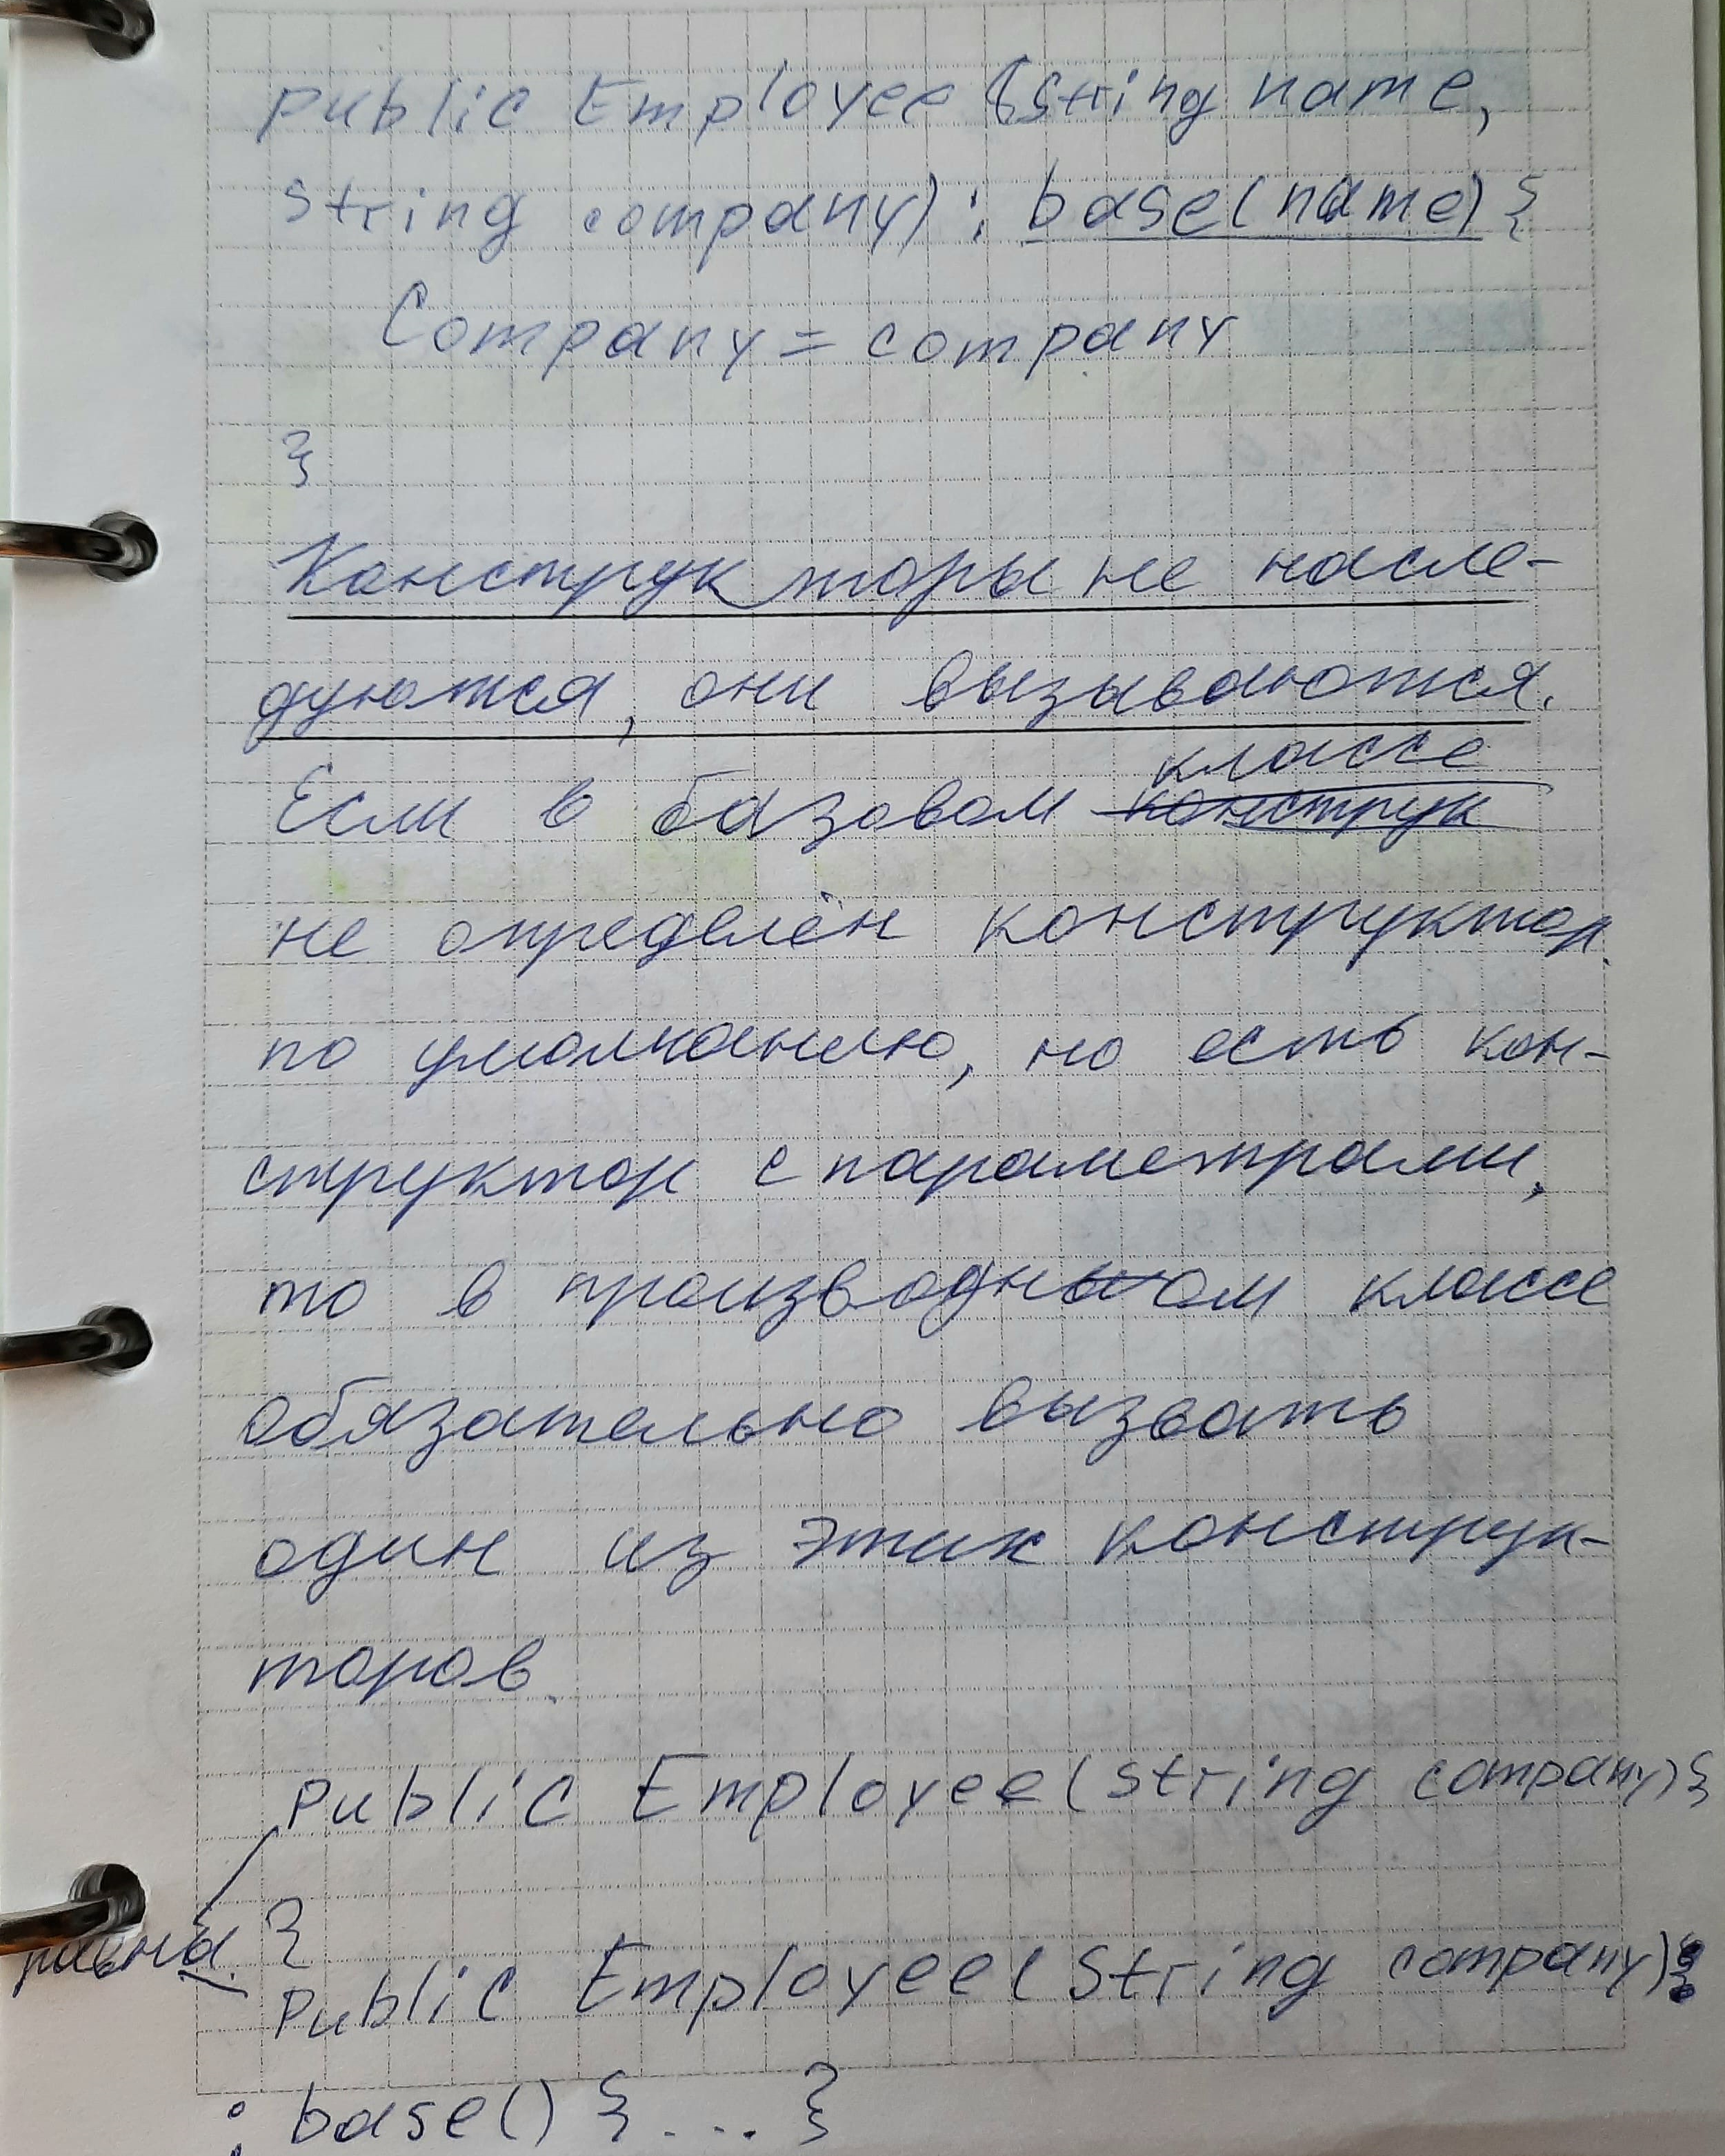 public Employee (string name,
string company) : base(name) {
Company = company
}
Конструкторы не насле-
дуются, они вызываются.
классе
Если в базовом конструк
не определён конструктор
по умолчанию, но есть кон-
структор с параметрами,
то в производном классе
обязательно вызвать
один из этих конструк-
торов.
Public Employee(string company) {
равна }
Public Employee(String company)
: base() { ... }